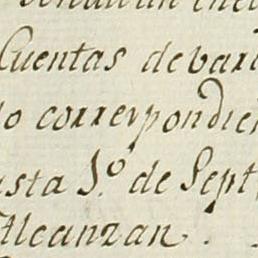 Cuentas de vari
do correspondien
asta 1.º de Sept
Alcanzan.